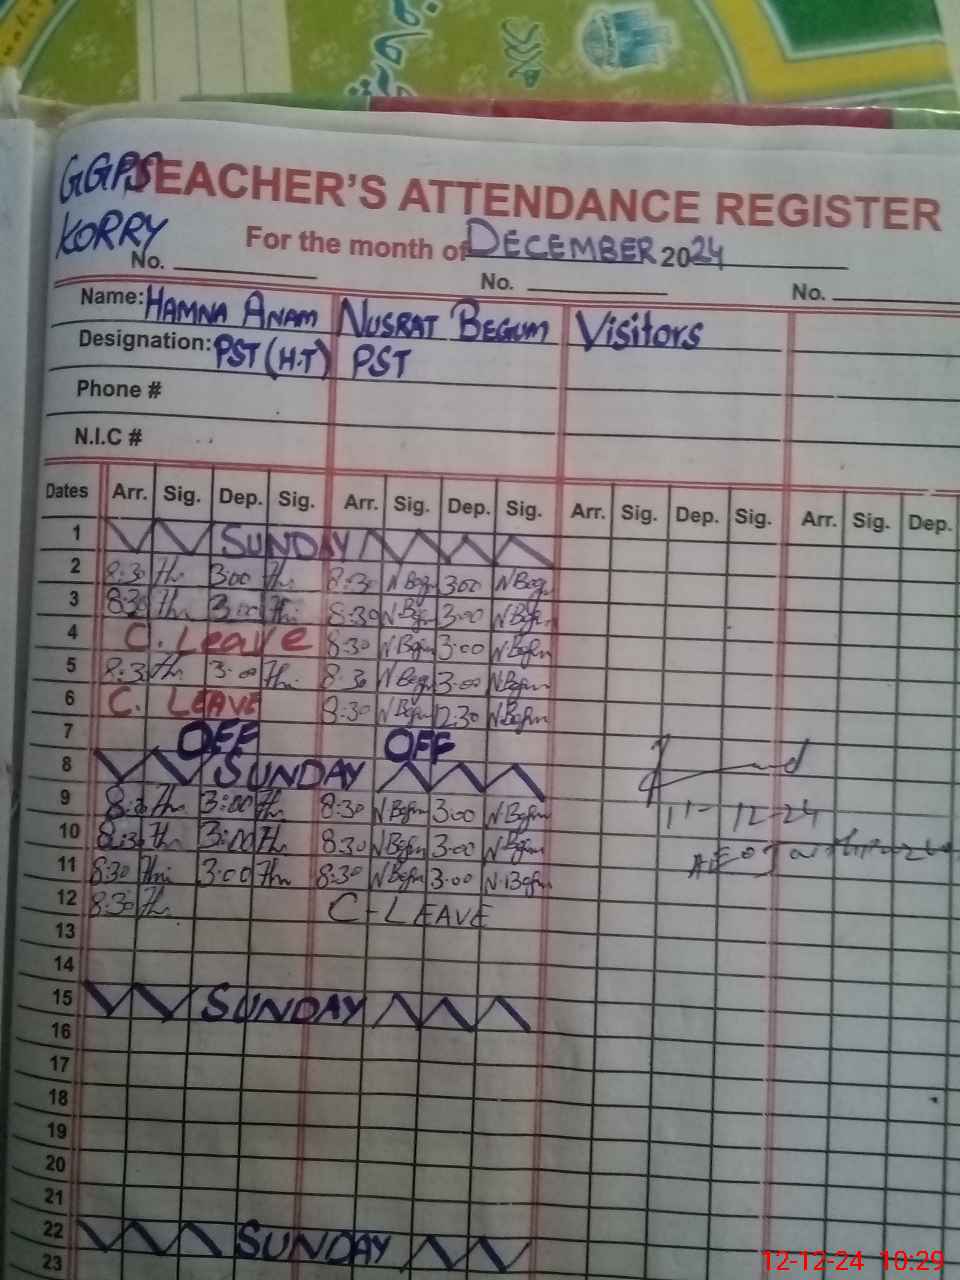 GGPS TEACHER'S ATTENDANCE REGISTER
KORRY For the month of DECEMBER 2024
No. No. No.
Name: HAMNA ANAM NUSRAT BEGUM Visitors
Designation: PST (H.T) PST
Phone #
N.I.C #
Dates Arr. Sig. Dep. Sig. Arr. Sig. Dep. Sig. Arr. Sig. Dep. Sig. Arr. Sig. Dep.
1 SUNDAY
2 8:30 3:00 8:30 N Begm 3:00 N Begm
3 8:30 3:00 8:30 N Begm 3:00 N Begm
4 C. Leave 8:30 N Begm 3:00 N Begm
5 8:30 3:00 8:30 N Begm 3:00 N Begm
6 C. LEAVE 8:30 N Begm 12:30 N Begm
7 OFF OFF
8 SUNDAY
9 8:30 3:00 8:30 N Begm 3:00 N Begm
11-12-24
10 8:30 3:00 8:30 N Begm 3:00 N Begm
AEO
11 8:30 3:00 8:30 N Begm 3:00 N Begm
12 8:30 C-LEAVE
13
14
15 SUNDAY
16
17
18
19
20
21
22 SUNDAY
23
12-12-24 10:29